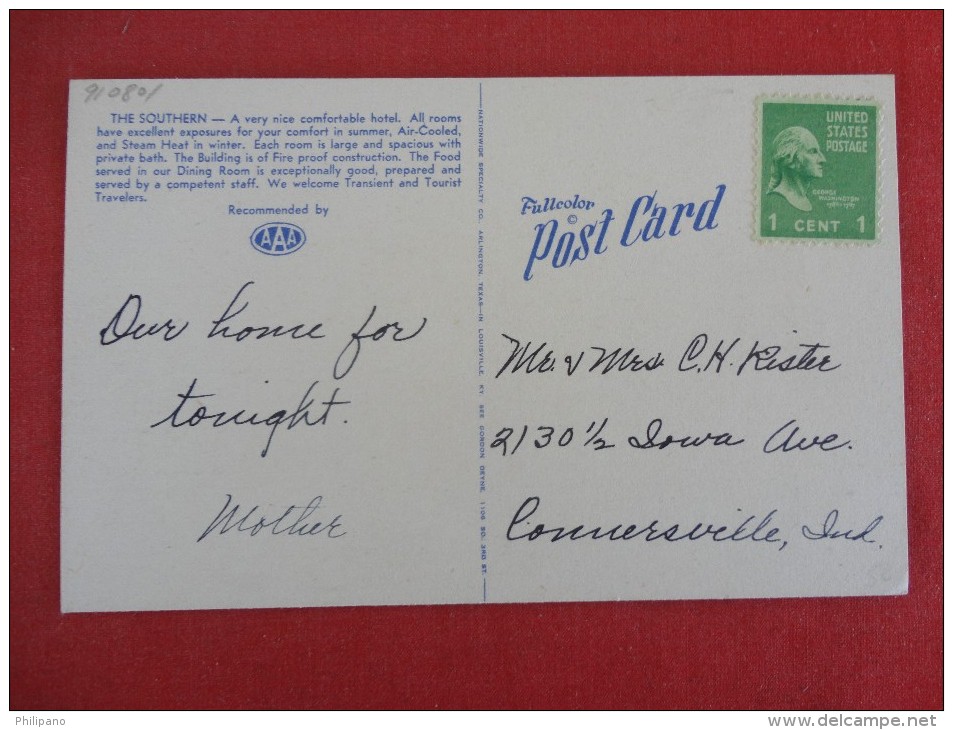 910801
THE SOUTHERN — A very nice comfortable hotel. All rooms
have excellent exposures for your comfort in summer, Air-Cooled,
and Steam Heat in winter. Each room is large and spacious with
private bath. The Building is of Fire proof construction. The Food
served in our Dining Room is exceptionally good, prepared and
served by a competent staff. We welcome Transient and Tourist
Travelers.
Recommended by
AAA
Our home for
tonight.
Mother
NATIONWIDE SPECIALTY CO., ARLINGTON, TEXAS—IN LOUISVILLE, KY. SEE GORDON OEYNE, 1106 SO. 3RD ST.
Fullcolor
©
Post Card
UNITED
STATES
POSTAGE
GEORGE
WASHINGTON
1 CENT 1
Mr. & Mrs. C.H. Kister
2130 1/2 Iowa Ave.
Connersville, Ind.
Philipano
www.delcampe.net